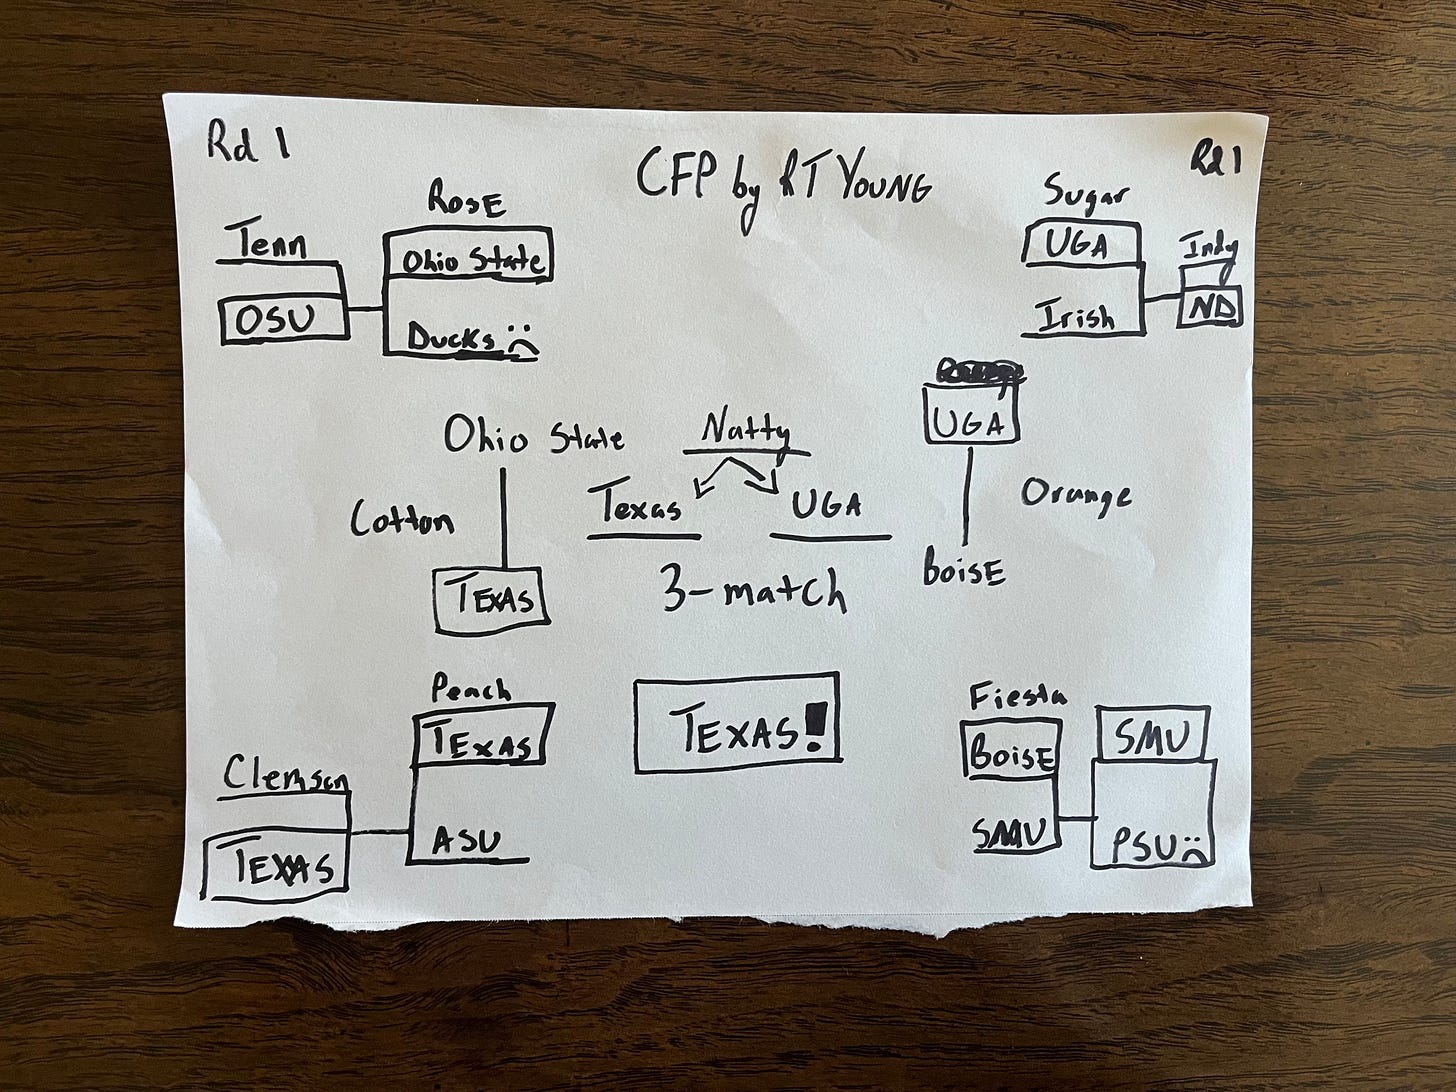 Rd 1
CFP by RT YOUNG
Rd 1
Rose
Tenn
Ohio State
OSU
Ducks :(
Sugar
UGA
Indy
Irish
ND
Ohio State
Cotton
TEXAS
Natty
Texas
UGA
3-match
UGA
Orange
BoisE
Peach
TEXAS
Clemson
ASU
TEXAS
TEXAS!
Fiesta
BoisE
SMU
SMU
PSU :(